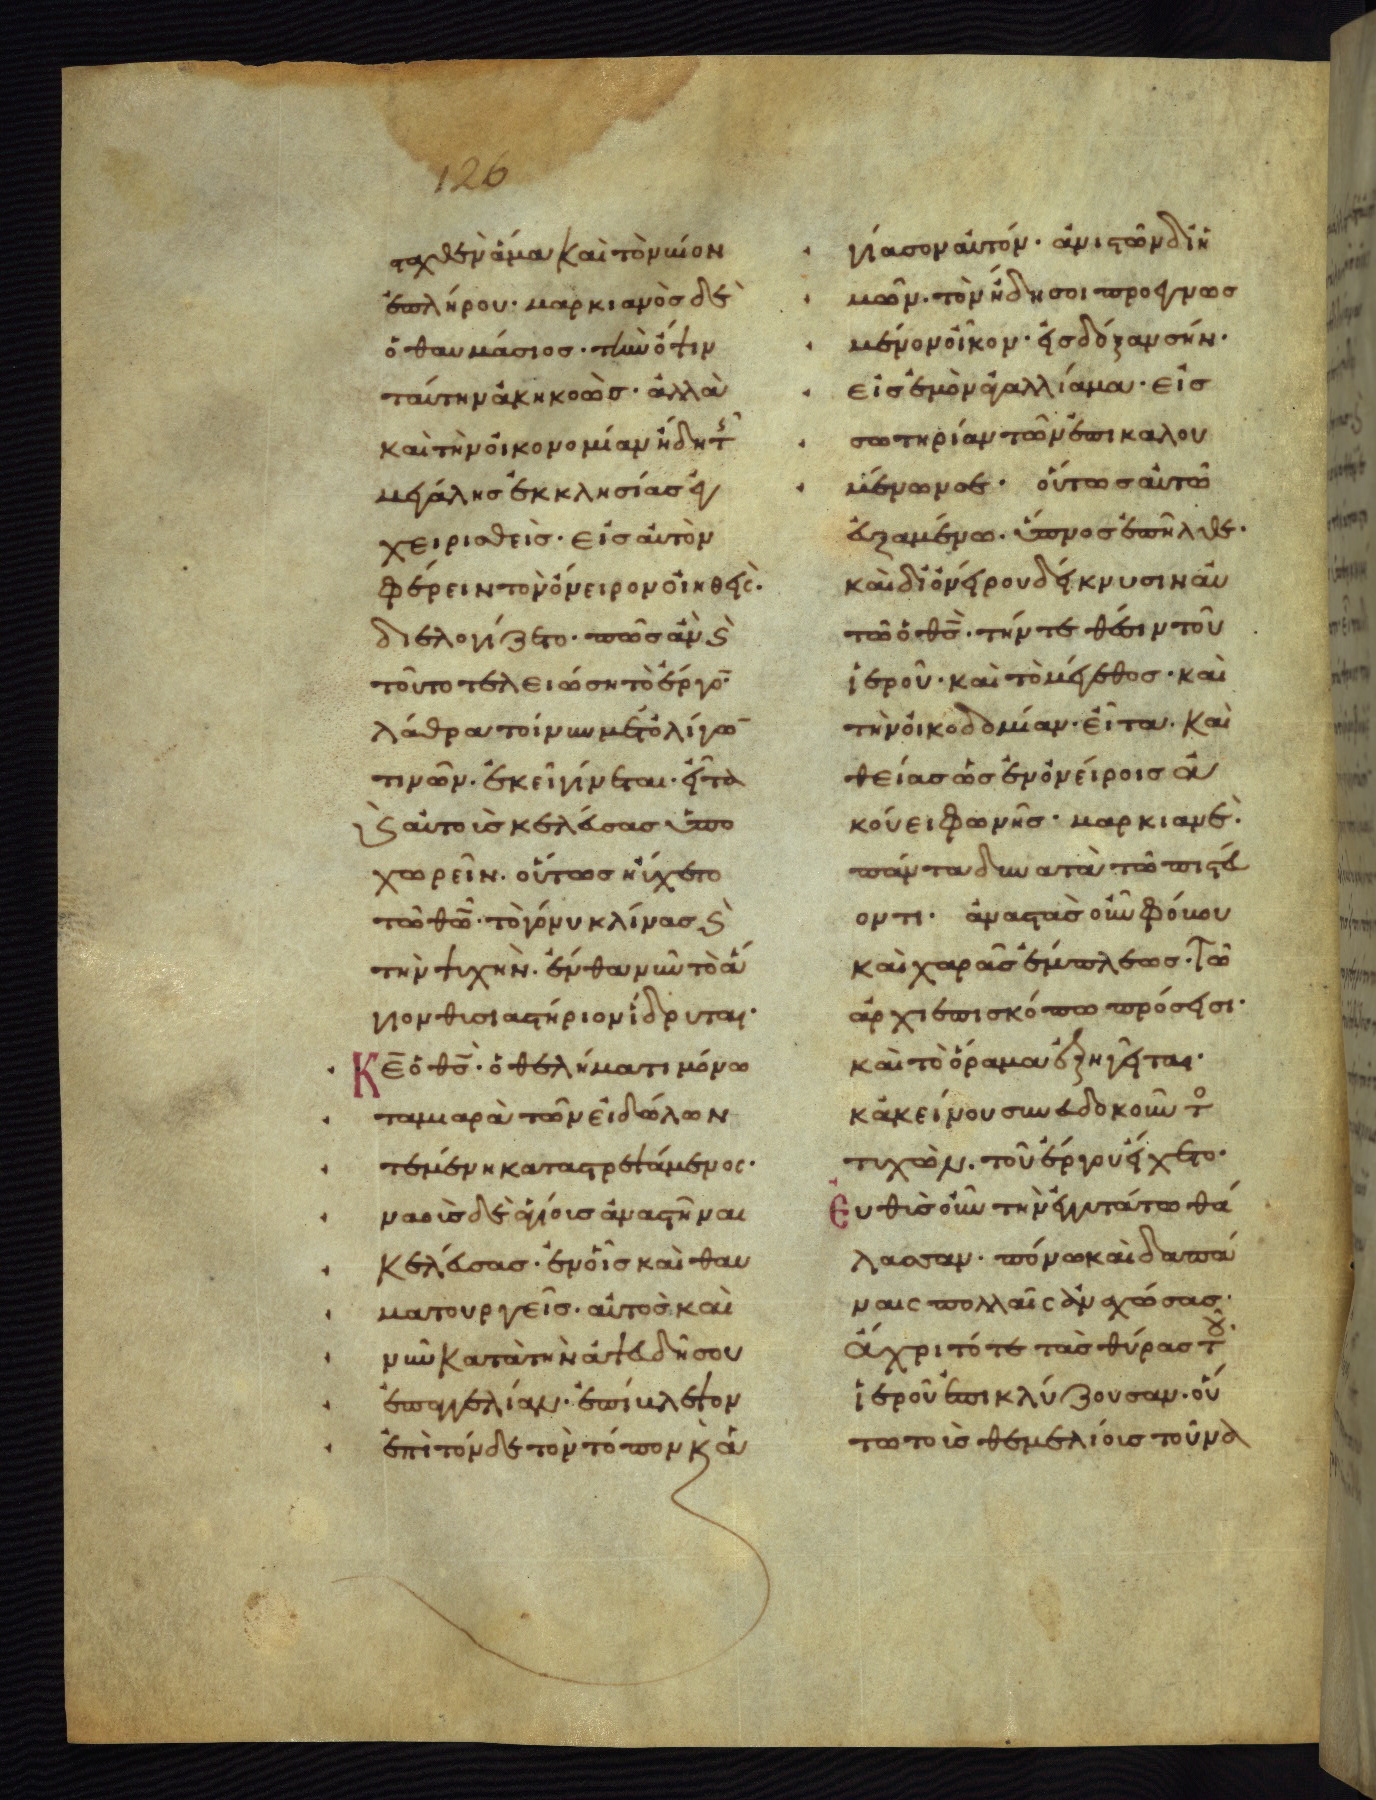 126
σαχθὲν ἅμα καὶ τὸν υἱὸν
ἐπλήρου· μαρκιανὸς δὲ
ὁ θαυμάσιος· τὴν ὄψιν
ταύτην ἀκηκοὼς· ἀλλὰ
καὶ τὴν οἰκονομίαν ἤδη τῆς
μεγάλης ἐκκλησίας ἐγ
χειρισθεὶς· εἰς αὐτὸν
φέρειν τὸν ὄνειρον οἰηθεὶς·
διελογίζετο· πῶς ἂν καὶ
τοῦτο τελειώση τὸ ἔργον·
λάθρα τοίνυν μετ' ὀλίγων
τινῶν· ἐκεῖ γίνεται· εἶτα
καὶ αὐτοῖς κελεύσας ὑπο
χωρεῖν· οὕτως ηὔχετο
τῶ θῶ· τὸ γόνυ κλίνας καὶ
τὴν ψυχὴν· ἔνθα νῦν τὸ ἅ
γιον θυσιαστήριον ἵδρυται·
Κε ὁ θς· ὁ θελήματι μόνω
τα μιαρὰ τῶν εἰδώλων
τεμένη καταστρεψάμενος·
ναοὶς δὲ ἁγίοις ἀναστῆναι
κελεύσας· ἐν οἷς καὶ θαυ
ματουργεῖς· αὐτὸς καὶ
νῦν κατὰ τὴν ἀψευδῆ σου
ἐπαγγελίαν· ἐπίβλεψον
ἐπὶ τόνδε τὸν τόπον καὶ ἁ
γίασον αὐτόν· ἀνιστῶν δι' ἡ
μῶν· τὸν ἤδη σοι προεγνωσ
μένον οἶκον· εἰς δόξαν σήν·
εἰς ἐμὸν ἀγαλλίαμα· εἰς
σωτηρίαν τῶν ἐπικαλου
μένων σε· οὕτως αὐτῶ
εὐξαμένω· ὕπνος ἐπῆλθε·
καὶ δι' ὀνείρου δείκνυσιν αὐ
τῶ ὁ θς· τήν τε θέσιν τοῦ
ἱεροῦ· καὶ τὸ μέγεθος· καὶ
τὴν οἰκοδομίαν· εἶτα· καὶ
θείας ὡς ἐν ὀνείροις ἀ
κούει φωνῆς· μαρκιανὲ·
πάντα δυνατὰ τῶ πιστεύ
οντι· ἀναστὰς οὖν φόβου
καὶ χαρᾶς ἔμπλεως· τῶ
ἀρχιεπισκόπω πρόσεισι·
καὶ τὸ ὅραμα ἐξηγεῖται·
κἀκείνου συνευδοκοῦντος
τυχὼν· τοῦ ἔργου εἴχετο·
Εὐθὺς οὖν τὴν ἐγγυτάτω θά
λασσαν· πόνω καὶ δαπά
ναις πολλαῖς ἀναχώσας·
ἄχρι τότε τὰς θύρας τοῦ
ἱεροῦ ἐπικλύζουσαν· οὕ
τω τοὶς θεμελίοις τοῦ να